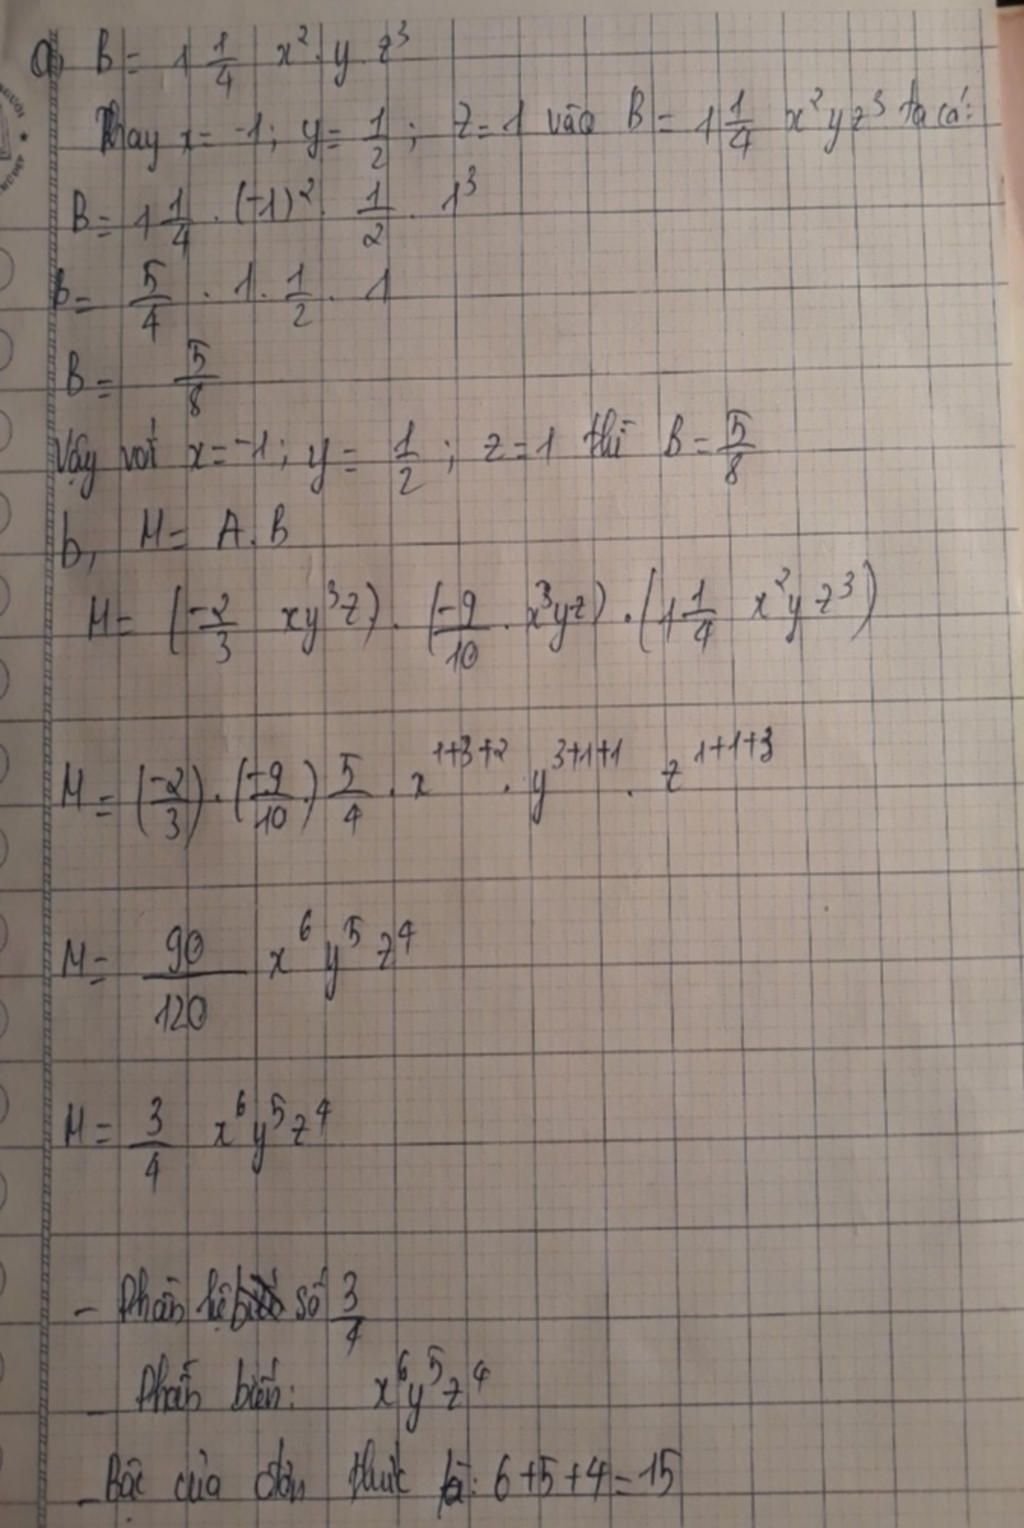 a, B = 1 1/4 x² y z³
Thay x = -1; y = 1/2; z = 1 vào B = 1 1/4 x² y z³ ta có:
B = 1 1/4 . (-1)² . 1/2 . 1³
B = 5/4 . 1 . 1/2 . 1
B = 5/8
Vậy với x = -1; y = 1/2; z = 1 thì B = 5/8
b, M = A . B
M = (-2/3 xy³z) . (-9/10 . x³yz) . (1 1/4 x²yz³)
M = (-2/3) . (-9/10) 5/4 . x¹⁺³⁺² . y³⁺¹⁺¹ . z¹⁺¹⁺³
M = 90/120 x⁶ y⁵ z⁴
M = 3/4 x⁶y⁵z⁴
- Phần hệ số 3/4
- Phần biến: x⁶y⁵z⁴
- Bậc của đơn thức là: 6+5+4=15